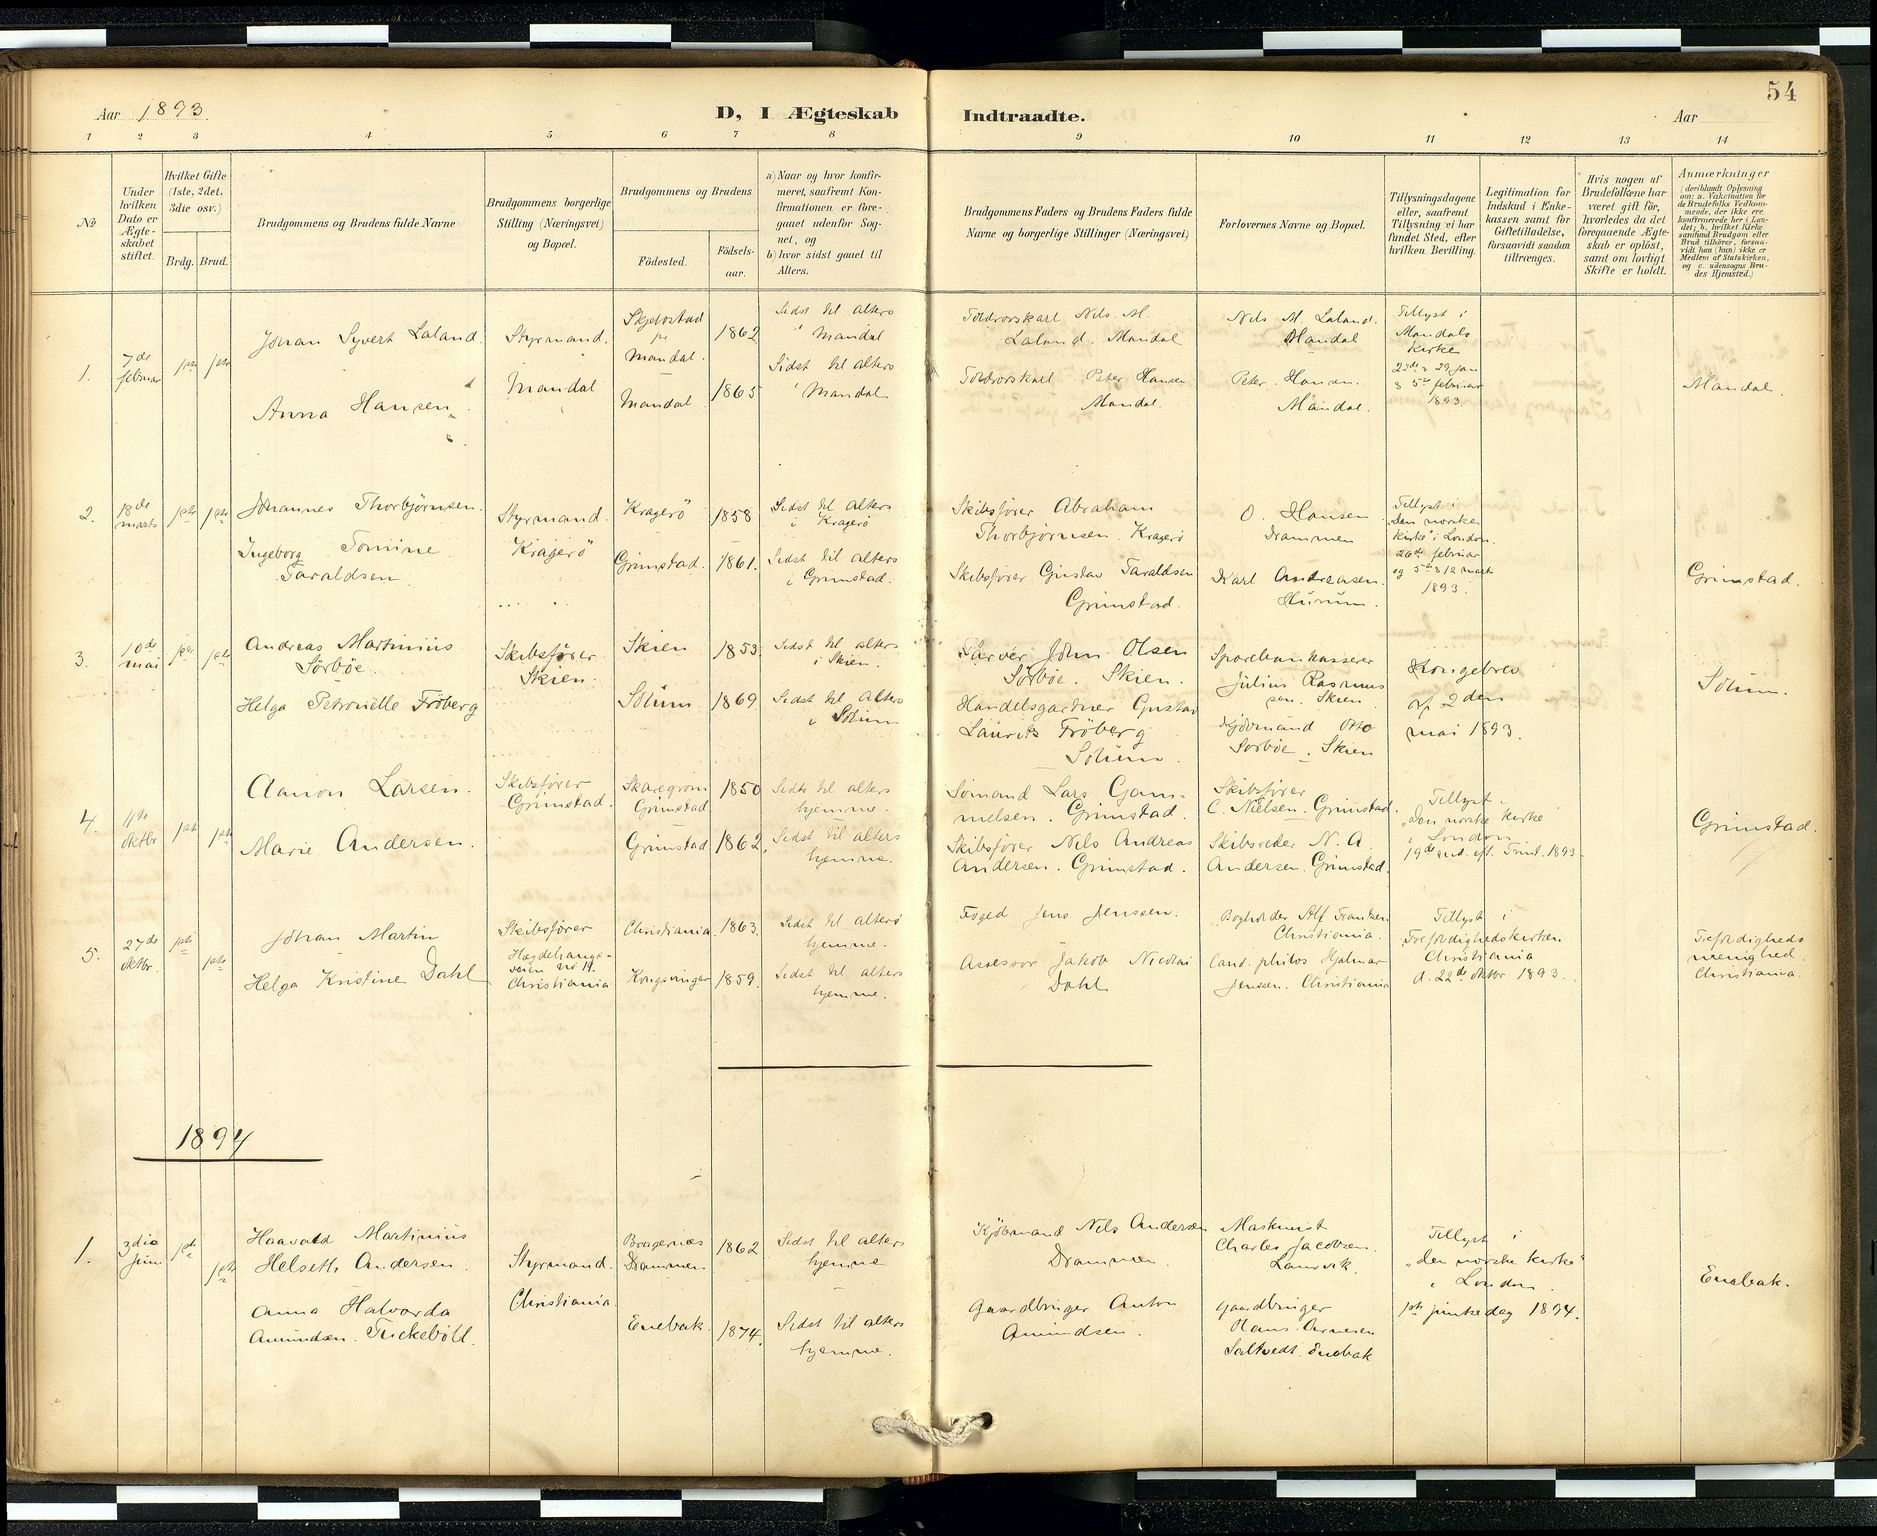 Aar 1893.
D, I Ægteskab Indtraadte.
Aar
54
1 2 3 4 5 6 7 8 9 10 11 12 13 14
No
Under hvilken Dato er Ægteskabet stiftet.
Hvilket Gifte (1ste, 2det, 3die osv.)
Brdg. Brud.
Brudgommens og Brudens fulde Navne
Brudgommens borgerlige Stilling (Næringsvei) og Bopæl.
Brudgommens og Brudens
Födested.
Födselsaar.
a) Naar og hvor konfirmeret, saafremt Konfirmationen er foregaaet udenfor Sognet, og
b) hvor sidst gaaet til Alters.
Brudgommens Faders og Brudens Faders fulde Navne og borgerlige Stillinger (Næringsvei)
Forlovernes Navne og Bopæl.
Tillysningsdagene eller, saafremt Tillysning ei har fundet Sted, efter hvilken Bevilling.
Legitimation for Indskud i Enkekassen samt for Giftetilladelse, forsaavidt saadan tiltrænges.
Hvis nogen af Brudefolkene har været gift för, hvorledes da det foregaaende Ægteskab er oplöst, samt om lovligt Skifte er holdt.
Anmærkninger
(deriblandt Oplysning om: a. Vakcination for de Brudefolks Vedkommende, der ikke ere konfirmerede her i Landet; b. hvilket Kirkesamfund Brudgom eller Brud tilhörer, forsaavidt han (hun) ikke er Medlem af Statskirken, og c. udensogns Brudes Hjemsted.)
1.
7de februar
1ste 1ste
Johan Syvert Laland.
Anna Hansen
Styrmand.
Mandal
Mandal.
Mandal.
1862
1865
Sidst til alters i Mandal
Sidst til alters i Mandal
Nils M. Laland. Mandal
Peter Hansen Mandal.
Nils M. Laland. Mandal
Peter Hansen. Mandal.
Tillyst i Mandals Kirke
22de & 29 jan & 5te februar 1893.
Mandal.
2.
18de marts
1ste 1ste
Johannes Thorbjørnsen.
Ingeborg Tomine Taraldsen.
Styrmand.
Kragerö
Kragerö
Grimstad.
1858
1861.
Sidst til alters i Kragerö
Sidst til alters i Grimstad.
Skibsfører Abraham Thorbjørnsen. Kragerö
Skibsfører Gustav Taraldsen Grimstad.
O. Hansen Drammen
Karl Andreasen. Hurum.
Tillyst i „Den norske Kirke" i London.
26de februar og 5te & 12 marts 1893.
Grimstad.
3.
10de mai
1ste 1ste
Andreas Martinius Sørbøe.
Helga Petronelle Fröberg
Skibsfører. Skien.
Skien
Solum
1853
1869
Sidst til alters i Skien.
Sidst til alters i Solum
Garver John Olsen Sørbøe. Skien.
Handelsgartner Gustav Laurits Fröberg Solum.
Sparebankkasserer Julius Rasmussen. Skien
Kjøbmand Otto Sorbøe. Skien
Kongebrev af 2den mai 1893.
Solum.
4.
11te oktbr
1ste 1ste
Aanon Larsen.
Marie Andersen.
Skibsfører Grimstad.
Grimstad
Grimstad
1850
1862
Sidst til alters hjemme.
Sidst til alters hjemme.
Sömand Lars Gammelsen. Grimstad.
Skibsfører Nils Andreas Andersen. Grimstad.
Skibsfører C. Nielsen. Grimstad.
Skibsreder N. A. Andersen. Grimstad.
Tillyst i „Den norske Kirke i London
19de snd. eft. Trint. 1893.
Grimstad.
5.
27de oktbr.
1ste 1ste
Johan Martin
Helga Kristine Dahl
Skibsfører
Hægdehaugsveien no 11. Christiania
Christiania
Kongsvinger
1863.
1859.
Sidst til alters hjemme.
Sidst til alters hjemme.
Foged Jens Jenssen.
Assessor Jakob Nicolai Dahl
Bogholder Alf Frantzen. Christiania.
Cand. philos Hjalmar Jensen. Christiania
Tillyst i Trefoldighedskirken Christiania
d. 22de oktbr 1893.
Trefoldigheds menighed. Christiania.
1894
1.
3die juni
1ste 1ste
Haavald Martinius Helseth Andersen.
Anna Halvorda Amundsen. Tuckeböll.
Styrmand.
Christiania
Bragernæs Drammen
Enebak.
1862
1874.
Sidst til alters hjemme
Sidst til alters hjemme.
Kjöbmand Nils Andersen Drammen.
Gaardbruger Anton Amundsen.
Maskinist Charles Jacobsen. Laurvik.
Gaardbruger Hans Arnesen Saltvedt. Enebak
Tillyst i „den norske kirke" i London
1ste pintsedag 1894.
Enebak.